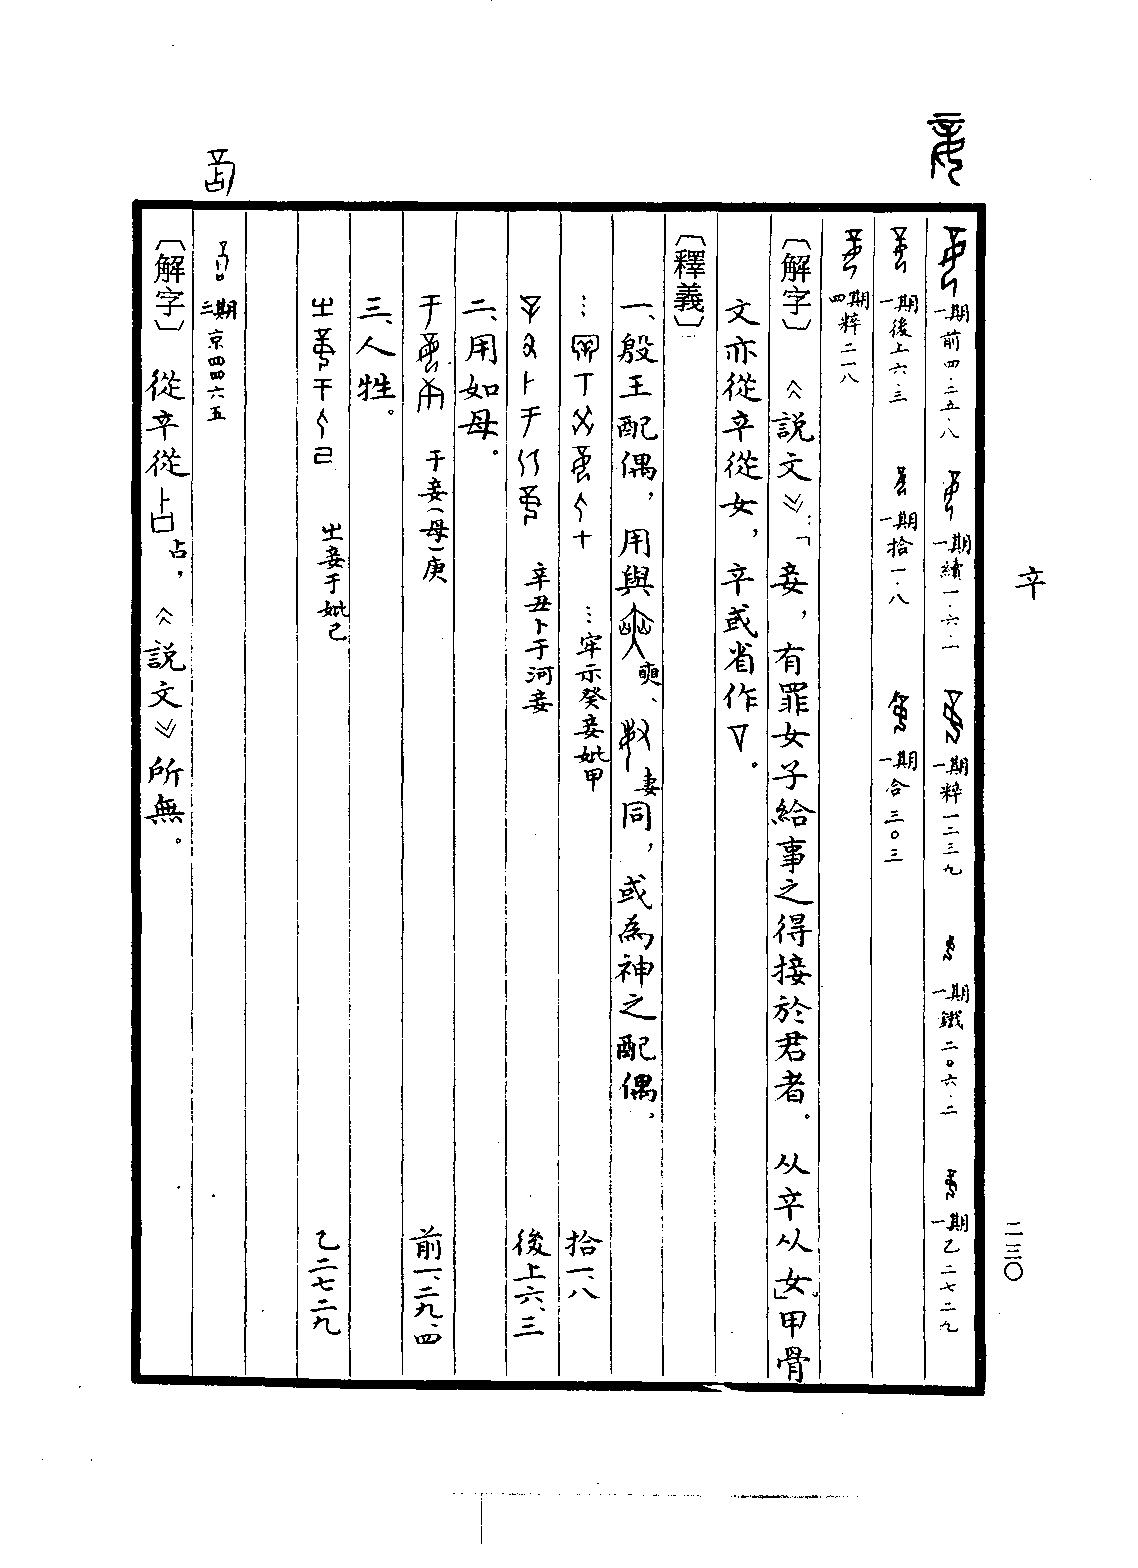 䇂
二三〇
一期前四·二五·八 一期續一·六·一 一期粹一二三九 一期鐵二〇六·二 一期乙二七二九
一期後上六·三 一期拾一·八 一期合三〇三
四期粹二一八
〔解字〕《說文》：「妾，有罪女子給事之得接於君者。从䇂从女。」甲骨
文亦從䇂從女，䇂或省作▽。
〔釋義〕
一、殷王配偶，用與奭、妻同，或為神之配偶，
…牢示癸妾妣甲 拾一、八
辛丑卜于河妾 後上六、三
二、用如母。
于妾（母）庚 前一、二九、四
三、人牲。
㞢妾于妣己 乙二七二九
三期京四四六五
〔解字〕從䇂從占，《說文》所無。